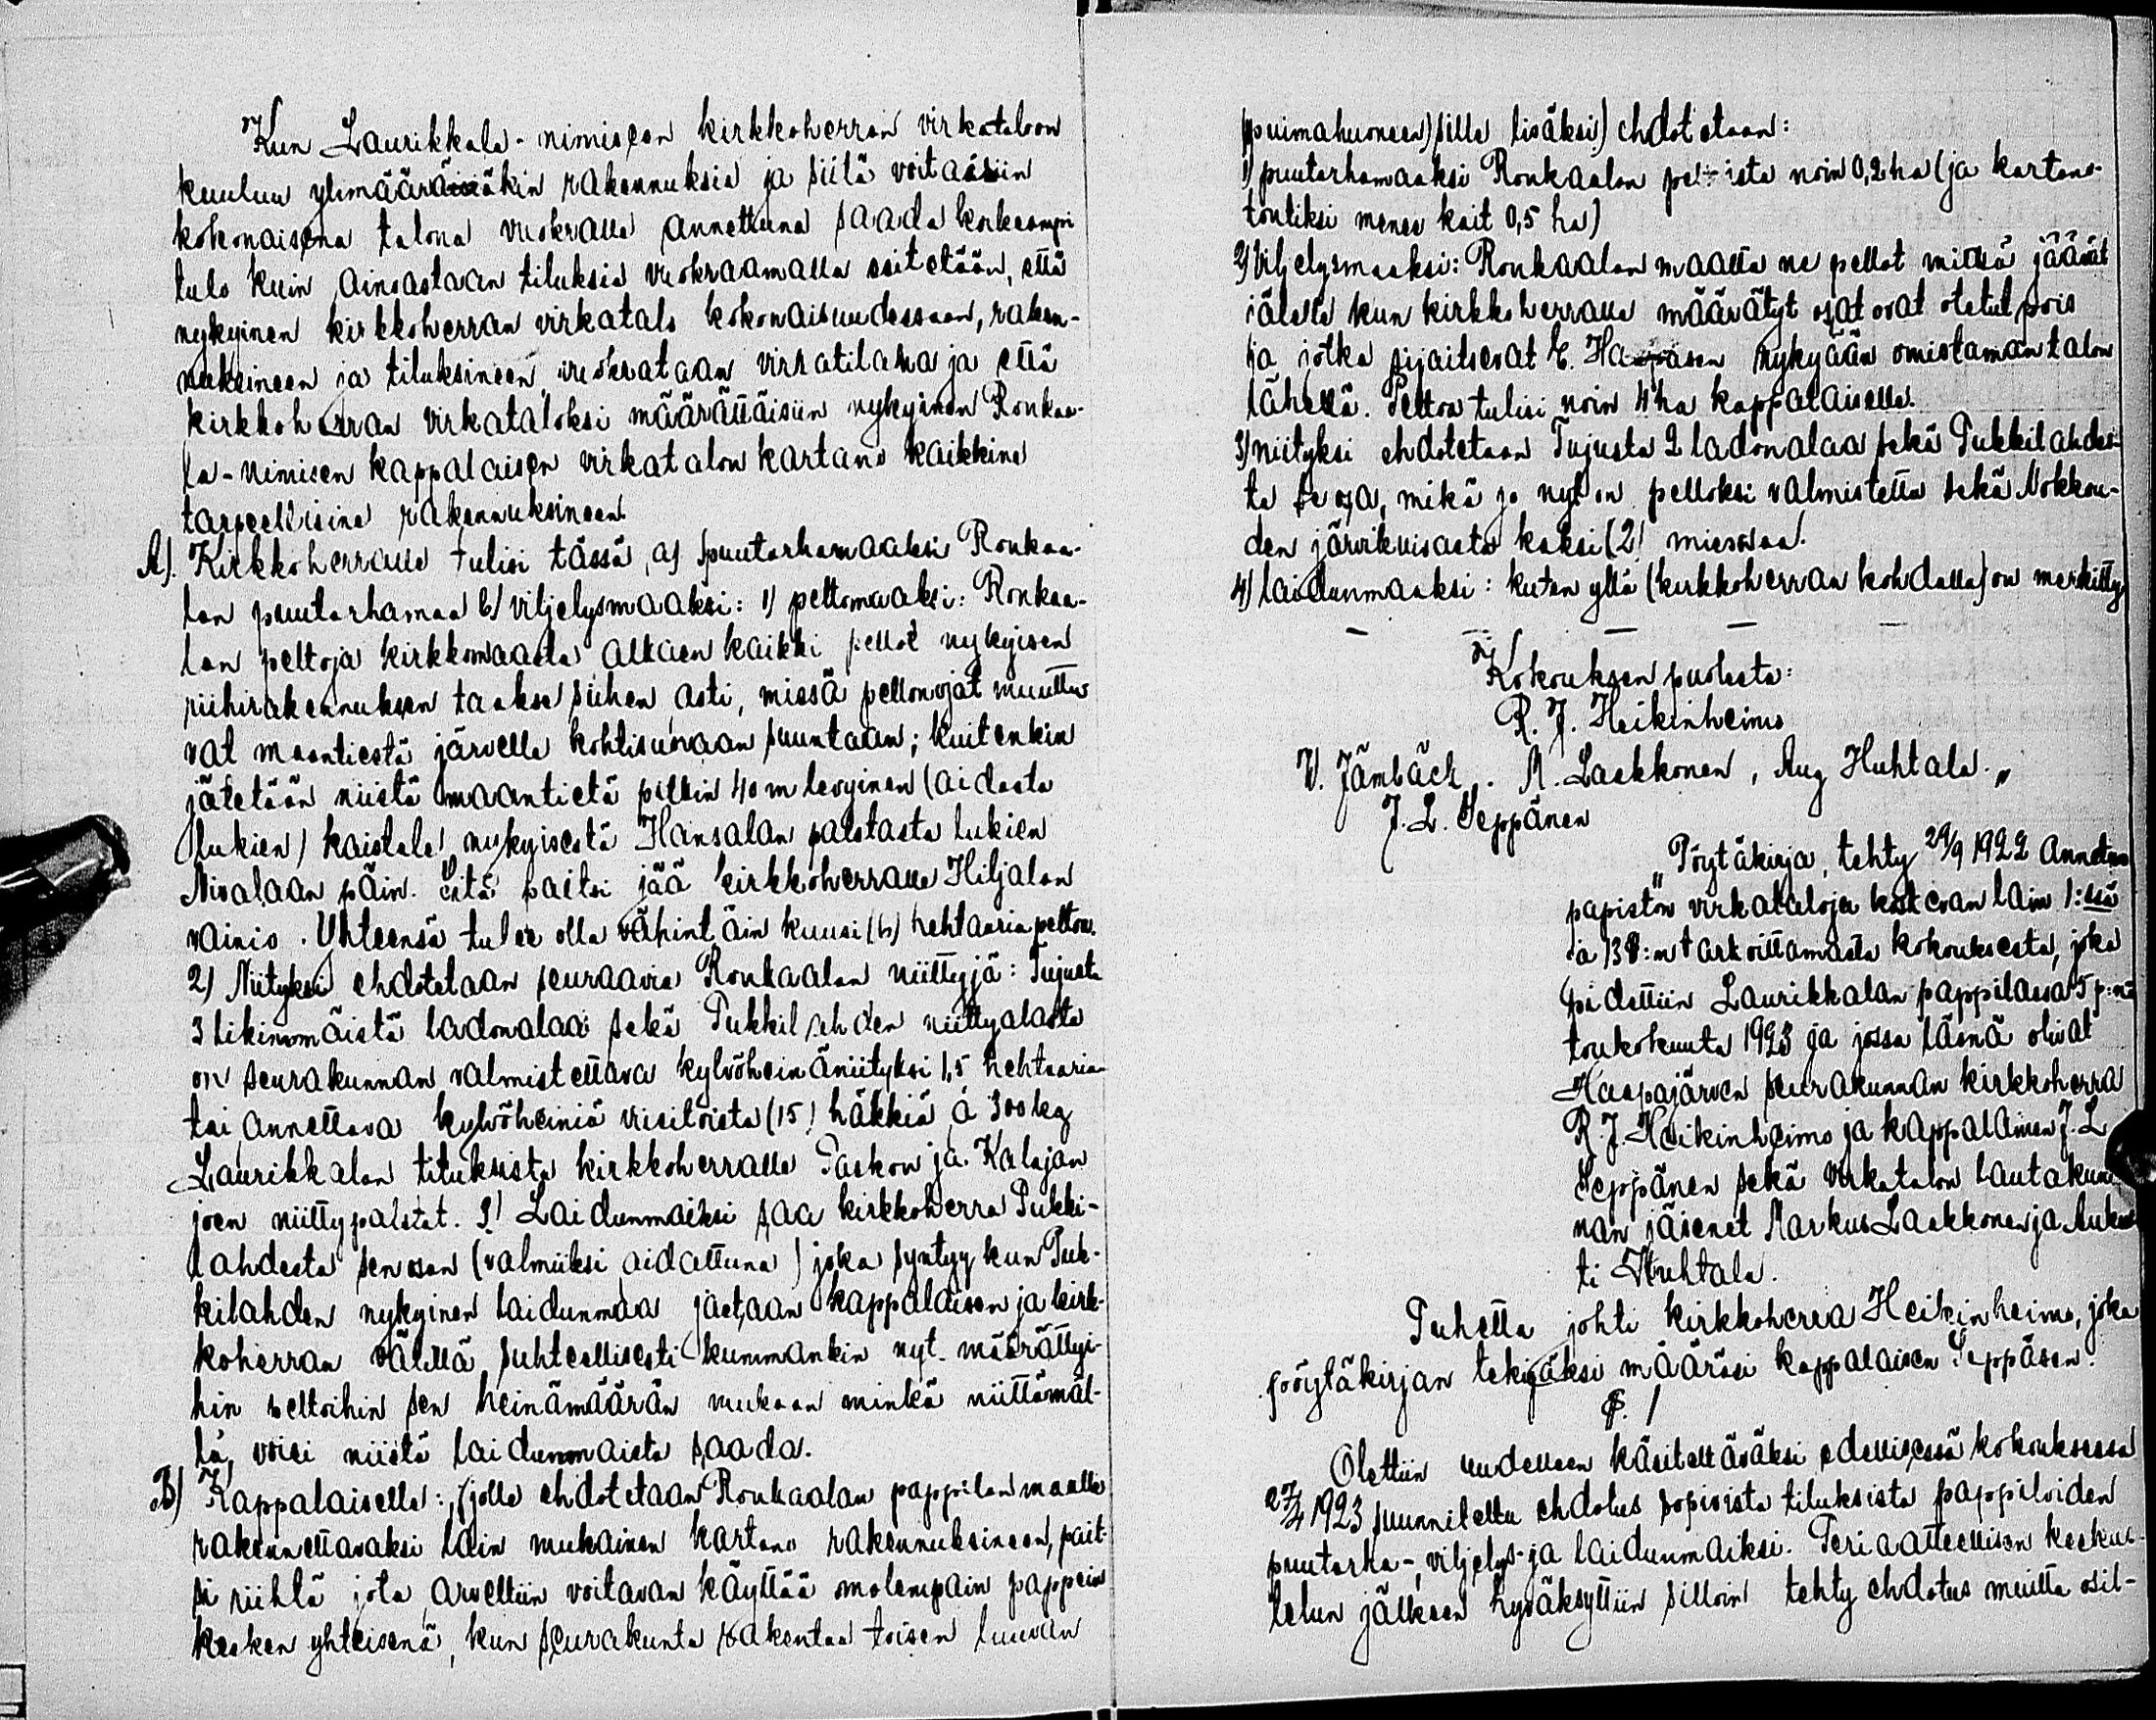 Kun Laurikkala-nimiseen kirkkoherran virkataloon
kuuluu ylimääräisiäkin rakennuksia ja siitä voitaisiin
kokonaisena talona vuokralla annettuna saada korkeampi
tulo kuin ainoastaan tiluksia vuokraamalla esitetään, että
nykyinen kirkkoherran virkatalo kokonaisuudessaan, raken-
nuksineen ja tiluksineen vuokrataan virkatilana ja että
kirkkoherran virkataloksi määrättäisiin nykyinen Ronkaa-
la-nimisen kappalaisen virkatalon kartano kaikkine
tarpeellisine rakennuksineen.
A). Kirkkoherralle tulisi tässä, a) puutarhamaaksi Ronkaa-
lan puutarhamaa b) viljelysmaaksi: 1) peltomaaksi: Ronkaa-
lan peltoja kirkkomaasta alkaen kaikki pellot nykyisen
riihirakennuksen taakse siihen asti, missä pellonojat muuttu
vat maantiestä järvelle kohtisuoraan suuntaan; kuitenkin
jätetään niistä maantietä pitkin 40 m levyinen (aidasta
lukien) kaistale nykyisestä Hansalan palstasta lukien
Nivalaan päin. Sitä paitsi jää kirkkoherralle Hiljalan
vainio. Yhteensä tulee olla vähintäin kuusi (6) hehtaaria peltoa.
2) Niityksi ehdotetaan seuraavia Ronkaalan niittyjä: Tujusta
3 likimmäistä ladonalaa sekä Pukkilahden niittyalasta
on seurakunnan valmistettava kylvöheinäniityksi 1,5 hehtaaria
tai annettava kylvöheiniä viisitoista (15) häkkiä á 300 kg
Laurikkalan tiluksista kirkkoherralle Paskon ja Kalajan
joen niittypalstat. 3) Laidunmaiksi saa kirkkoherra Pukki-
lahdesta sen osan (valmiiksi aidattuna) joka syntyy kun Puk-
kilahden nykyinen laidunmaa jaetaan kappalaisen ja kirk-
koherran välillä suhteellisesti kummankin nyt määrättyi-
hin peltoihin sen heinämäärän mukaan minkä niittämäl-
lä voisi niistä laidunmaista saada.
B) Kappalaiselle: (jolle ehdotetaan Ronkaalan pappilan maalle
rakennettavaksi lain mukainen kartano rakennuksineen, pait-
si riihtä jota arveltiin voitavan käyttää molempain pappein
kesken yhteisenä, kun seurakunta rakentaa toisen luuvan
(puimahuoneen) sille lisäksi) ehdotetaan:
1) puutarhamaaksi Ronkaalan pelloista noin 0,2 ha (ja kartano-
tontiksi menee kait 0,5 ha)
2) Viljelysmaaksi: Ronkaalan maalta ne pellot mitkä jäävät
jälelle kun kirkkoherralle määrätyt osat ovat otetut pois
ja jotka sijaitsevat E. Haapasen nykyään omistaman talon
lähellä. Peltoa tulisi noin 4 ha kappalaiselle.
3) niityksi ehdotetaan Tujusta 2 ladonalaa sekä Pukkilahdes-
ta se osa, mikä jo nyt on pelloksi valmistettu sekä Nokkou-
den järvikuisasta kaksi (2) miesosaa.
4) laidunmaaksi: kuten yllä (kirkkoherran kohdalla) on merkitty.
Kokouksen puolesta:
R. J. Heikinheimo
V. Jämbäck. M. Laakkonen, Aug Huhtala.„
J. L. Seppänen
„Pöytäkirja, tehty 29/9 1922 Annetun
papiston virkataloja koskevan lain 1:ssä
ja 138:n tarkoittamasta kokouksesta, joka
pidettiin Laurikkalan pappilassa 5 p:nä
toukokuuta 1923 ja jossa läsnä olivat
Haapajärven seurakunnan kirkkoherra
R. J. Heikinheimo ja kappalainen J. L
Seppänen sekä virkatalon lautakun
nan jäsenet Markus Laakkonen ja Aukus
ti Huhtala.
Puhetta johti kirkkoherra Heikinheimo, joka
pöytäkirjan tekijäksi määräsi kappalaisen Seppäsen.
§. 1
Otettiin uudelleen käsiteltäväksi edellisessä kokouksessa
27/4 1923 suunniteltu ehdotus sopivista tiluksista pappiloiden
puutarha-, viljelys- ja laidunmaiksi. Periaatteellisen keskus-
telun jälkeen hyväksyttiin silloin tehty ehdotus muilta osil-